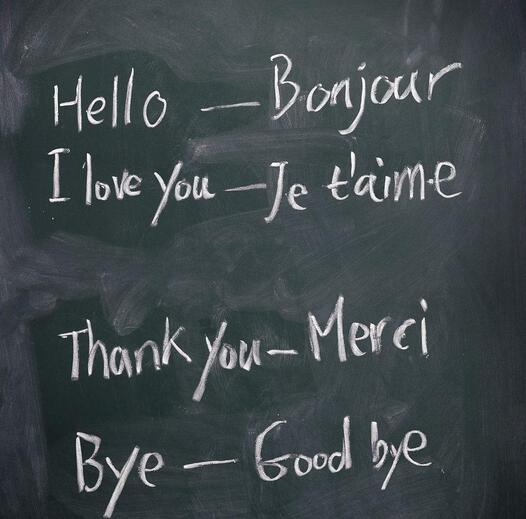 Hello — Bonjour
I love you — Je t'aime
Thank you — Merci
Bye — Good bye